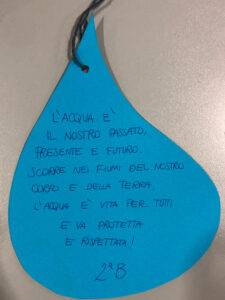 L'ACQUA E'
IL NOSTRO PASSATO,
PRESENTE E FUTURO.
SCORRE NEI FIUMI DEL NOSTRO
CORPO E DELLA TERRA.
L'ACQUA E' VITA PER TUTTI
E VA PROTETTA
E RISPETTATA!
2ªB